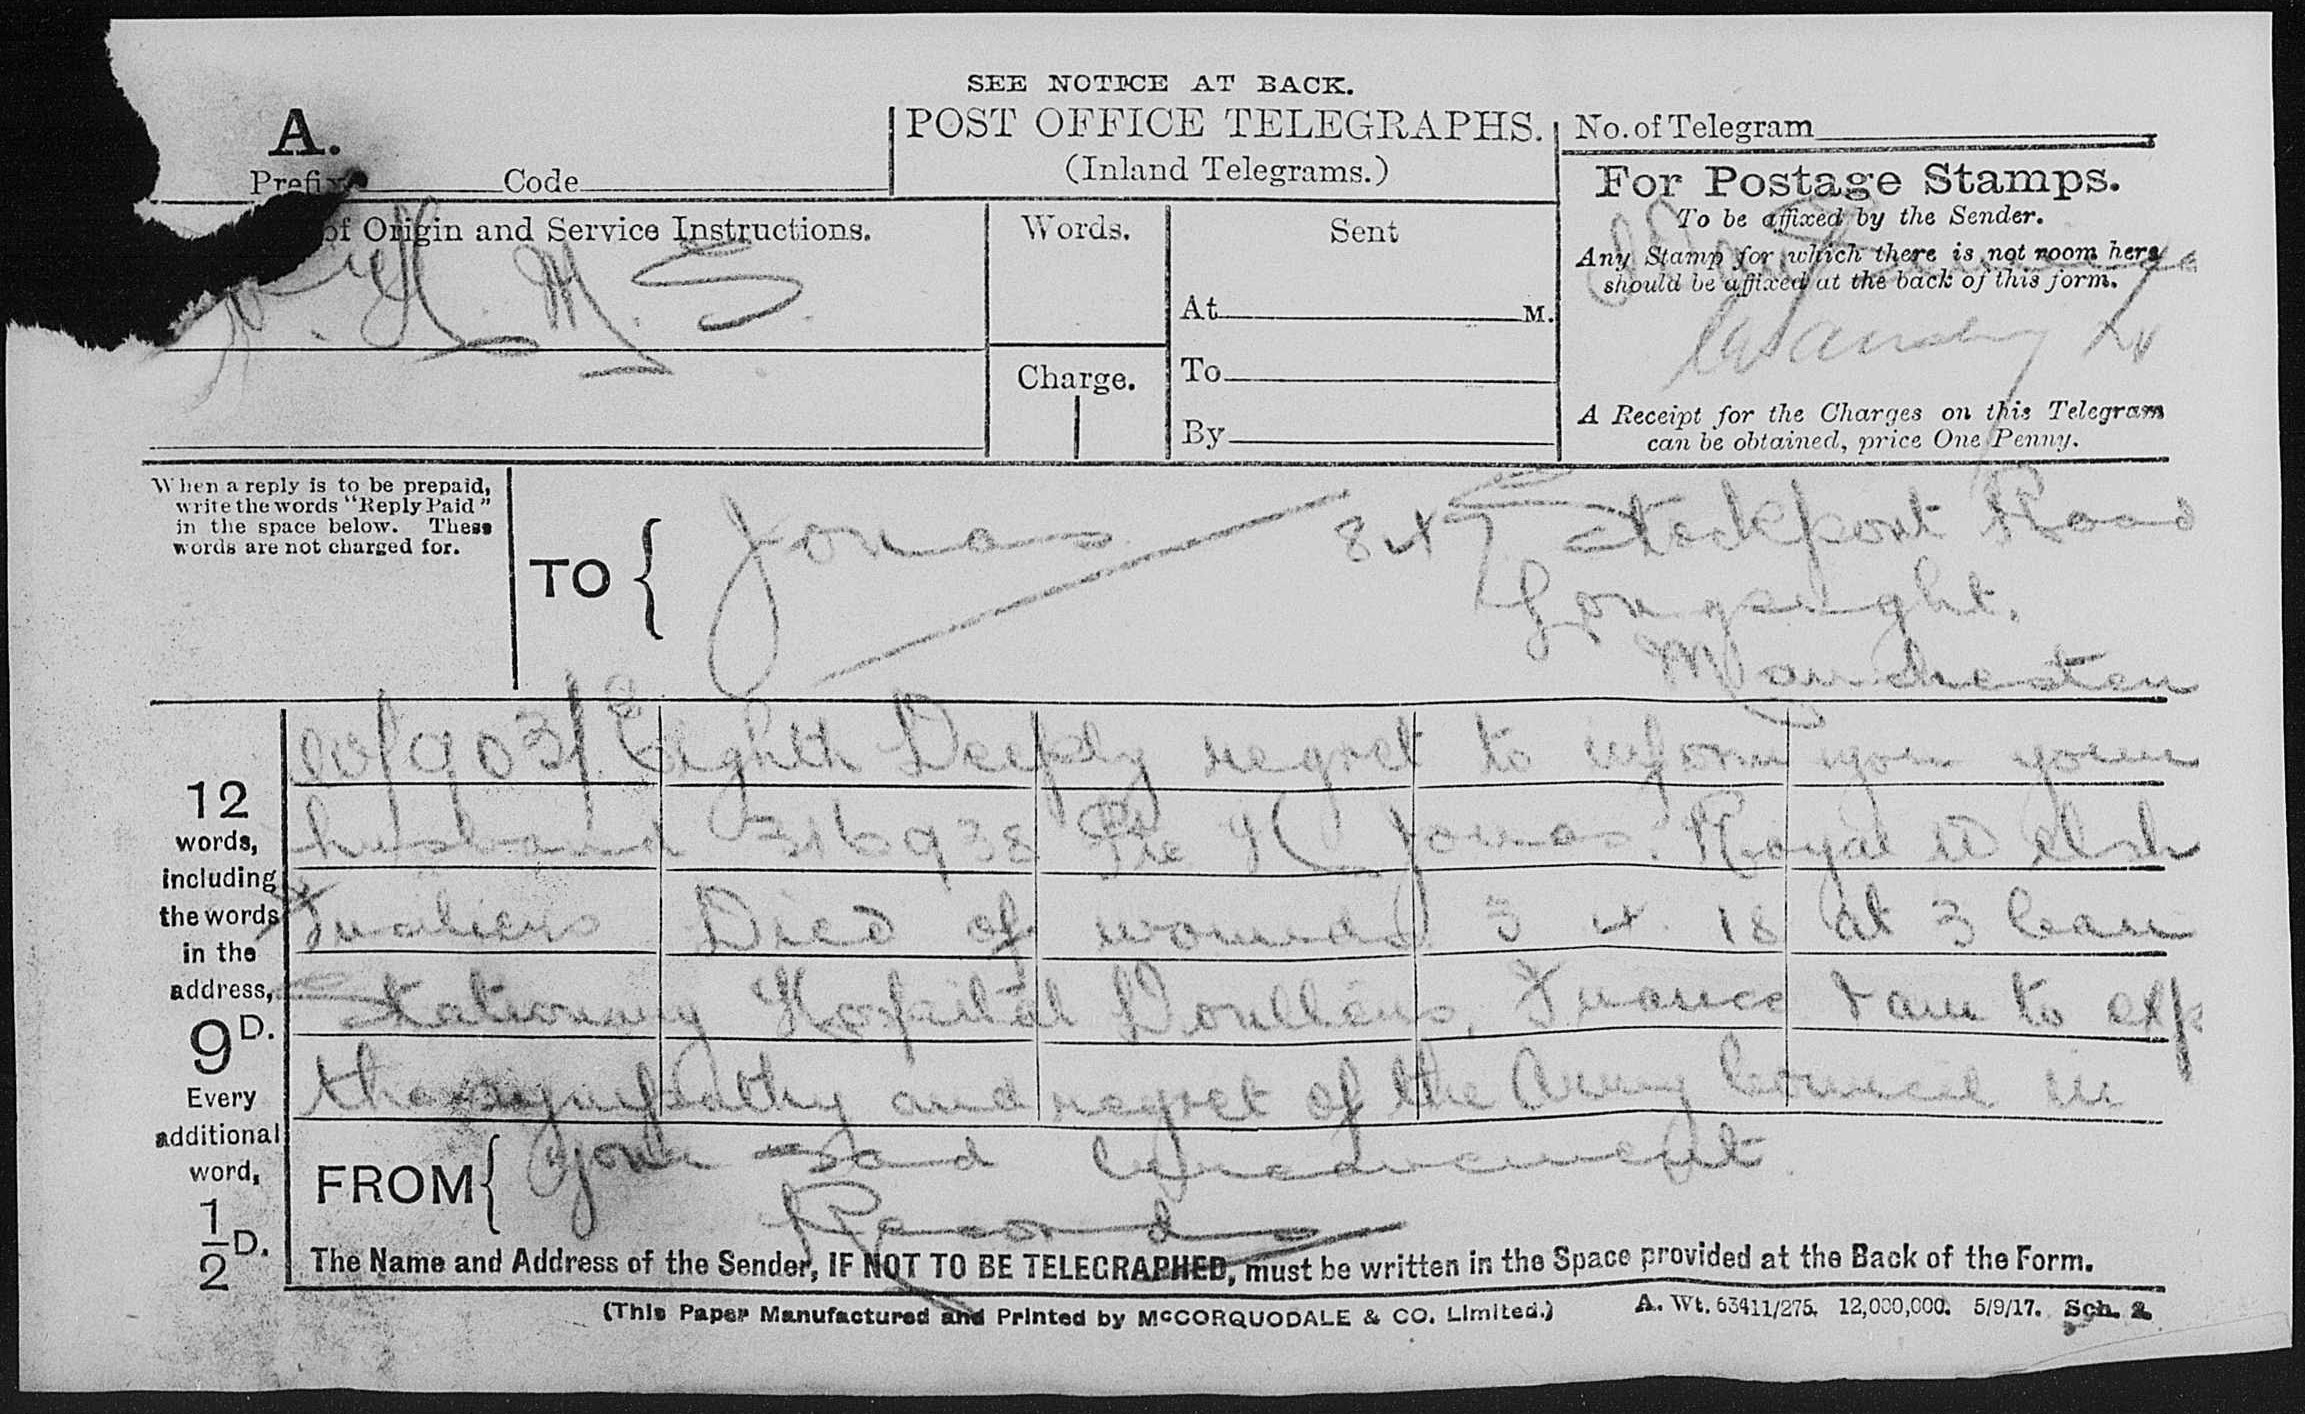 SEE NOTICE AT BACK.
A.
POST OFFICE TELEGRAPHS.
(Inland Telegrams.)
No. of Telegram
Prefix Code
For Postage Stamps.
To be affixed by the Sender.
Any Stamp for which there is not room here
should be affixed at the back of this form.
A Receipt for the Charges on this Telegram
can be obtained, price One Penny.
of Origin and Service Instructions.
Words.
Sent
H. M. S.
At M.
Charge.
To
By
When a reply is to be prepaid,
write the words "Reply Paid"
in the space below. These
words are not charged for.
TO
Jonas 847 Stockport Road
Longsight.
Manchester
Eighth Deeply regret to inform you your
husband 316938 Pte H Jonas. Royal Welsh
Fusiliers Died of wounds 3 4 18 at 3 Can
Stationary Hospital Doullens, France I am to exp
the sympathy and regret of the Army Council in
your sad bereavement
Records
12
words,
including
the words
in the
address,
9D.
Every
additional
word,
1/2 D.
FROM
The Name and Address of the Sender, IF NOT TO BE TELEGRAPHED, must be written in the Space provided at the Back of the Form.
(This Paper Manufactured and Printed by McCORQUODALE & CO. Limited.) A. Wt. 63411/275. 12,000,000. 5/9/17. Sch. 2.